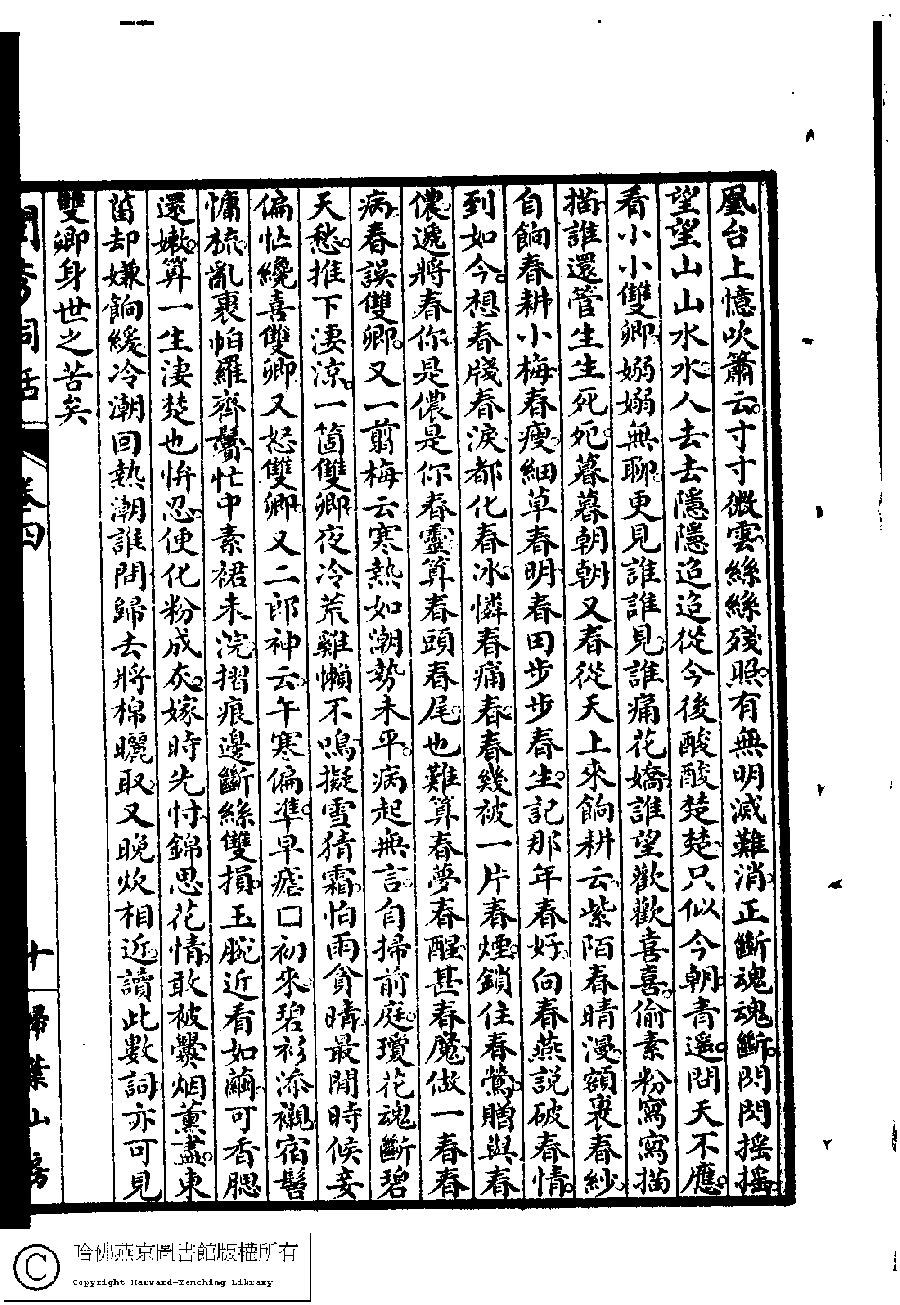 凰台上憶吹簫云寸寸微雲絲絲殘照有無明滅難消正斷魂魂斷閃閃搖搖
望望山山水水人去去隱隱迢迢從今後酸酸楚楚只似今朝青遥問天不應
看小小雙卿嫋嫋無聊更見誰誰見誰痛花嬌誰望歡歡喜喜偷素粉寫寫描
描誰還管生生死死暮暮朝朝又春從天上來餉耕云紫陌春晴漫額裹春紗
自餉春耕小梅春瘦細草春明春田步步春生記那年春好向春燕說破春情
到如今想春牋春淚都化春冰憐春痛春春幾被一片春煙鎖住春鶯贈與春
儂遞將春你是儂是你春靈算春頭春尾也難算春夢春醒甚春魔做一春春
病春誤雙卿又一翦梅云寒熱如潮勢未平病起無言自掃前庭瓊花魂斷碧
天愁推下淒涼一箇雙卿夜冷荒雞懶不鳴擬雪猜霜怕雨貪晴最閒時候妾
偏忙纔喜雙卿又怒雙卿又二郎神云午寒偏準早瘧囗初來碧衫添襯宿髻
慵梳亂裹帕羅齊鬢忙中素裙未浣摺痕邊斷絲雙損玉腕近看如繭可香腮
還嫩算一生淒楚也拚忍便化粉成灰嫁時先忖錦思花情敢被爨烟薰盡東
菑却嫌餉緩冷潮回熱潮誰問歸去將棉曬取又晚炊相近讀此數詞亦可見
雙卿身世之苦矣
閨秀詞話
卷四
十
掃葉山房
哈佛燕京圖書館版權所有
Copyright Harvard-Yenching Library